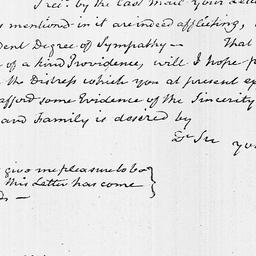 rec. by the last Mail your Lette
s mentioned in it are indeed afflicting,
dent Degree of Sympathy — That
of a kind Providence, will I hope p
the Distress which you at present ex
afford some Evidence of the Sincerity
and Family is desired by
Dr Sir yo
give me pleasure to be
this Letter has come